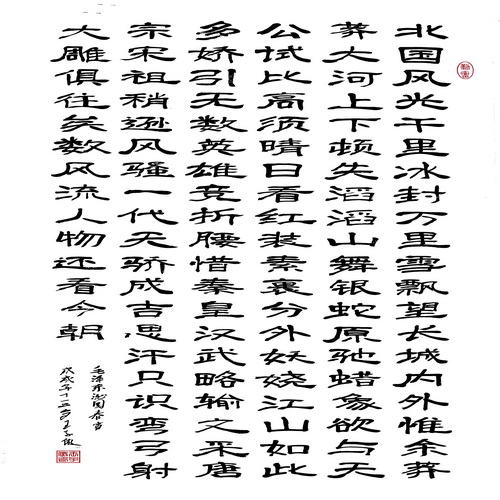 北国风光千里冰封万里雪飘望长城内外惟余莽
莽大河上下顿失滔滔山舞银蛇原驰蜡象欲与天
公试比高须晴日看红装素裹分外妖娆江山如此
多娇引无数英雄竞折腰惜秦皇汉武略输文采唐
宗宋祖稍逊风骚一代天骄成吉思汗只识弯弓射
大雕俱往矣数风流人物还看今朝
毛泽东沁园春雪
戊戌年十二岁王子